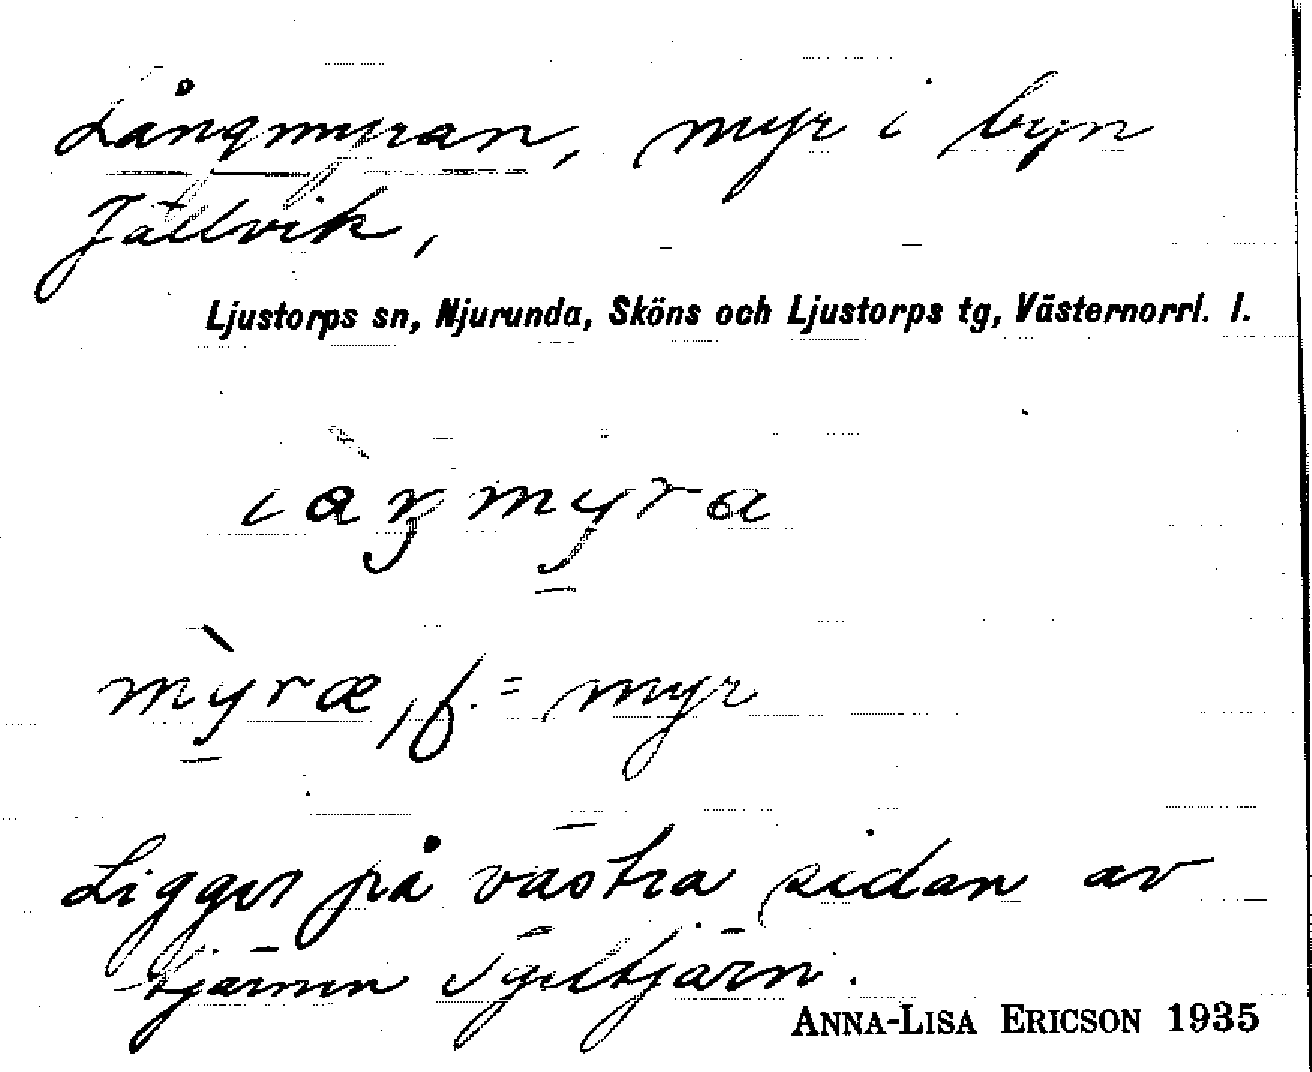 Långmyran, myr i byn
Jällvik,
Ljustorps sn, Njurunda, Sköns och Ljustorps tg, Västernorrl. l.
làŋmyra
mỳræ, f. = myr
Ligger på västra sidan av
tjärnen Igeltjärn.
ANNA-LISA ERICSON 1935